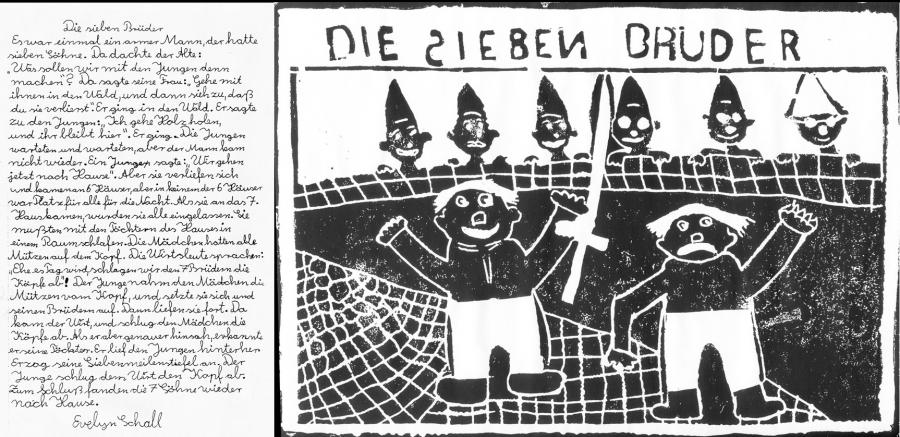 Die sieben Brüder
Es war einmal ein armer Mann, der hatte
sieben Söhne. Da dachte der Alte:
„Was sollen wir mit den Jungen denn
machen“? Da sagte seine Frau: „Gehe mit
ihnen in den Wald, und dann sieh zu, daß
du sie verlierst“. Er ging in den Wald. Er sagte
zu den Jungen: „Ich gehe Holz holen,
und ihr bleibt hier“. Er ging. Die Jungen
warteten und warteten, aber der Mann kam
nicht wieder. Ein Junge sagte: „Wir gehen
jetzt nach Hause“. Aber sie verliefen sich
und kamen an 6 Häuser, aber in keinem der 6 Häuser
war Platz für alle für die Nacht. Als sie an das 7.
Haus kamen, wurden sie alle eingelassen. Sie
mußten mit den Töchtern des Hauses in
einem Raum schlafen. Die Mädchen hatten alle
Mützen auf dem Kopf. Die Wirtsleute sprachen:
„Ehe es Tag wird, schlagen wir den 7 Brüdern die
Köpfe ab“! Der Junge nahm den Mädchen die
Mützen vom Kopf, und setzte sie sich und
seinen Brüdern auf. Dann liefen sie fort. Da
kam der Wirt, und schlug den Mädchen die
Köpfe ab. Als er aber genauer hinsah, erkannte
er seine Töchter. Er lief den Jungen hinterher
Er zog seine Siebenmeilenstiefel an. Der
Junge schlug dem Wirt den Kopf ab.
Zum Schluß fanden die 7 Söhne wieder
nach Hause.
Evelyn Schall
DIE SIEBEN BRUDER